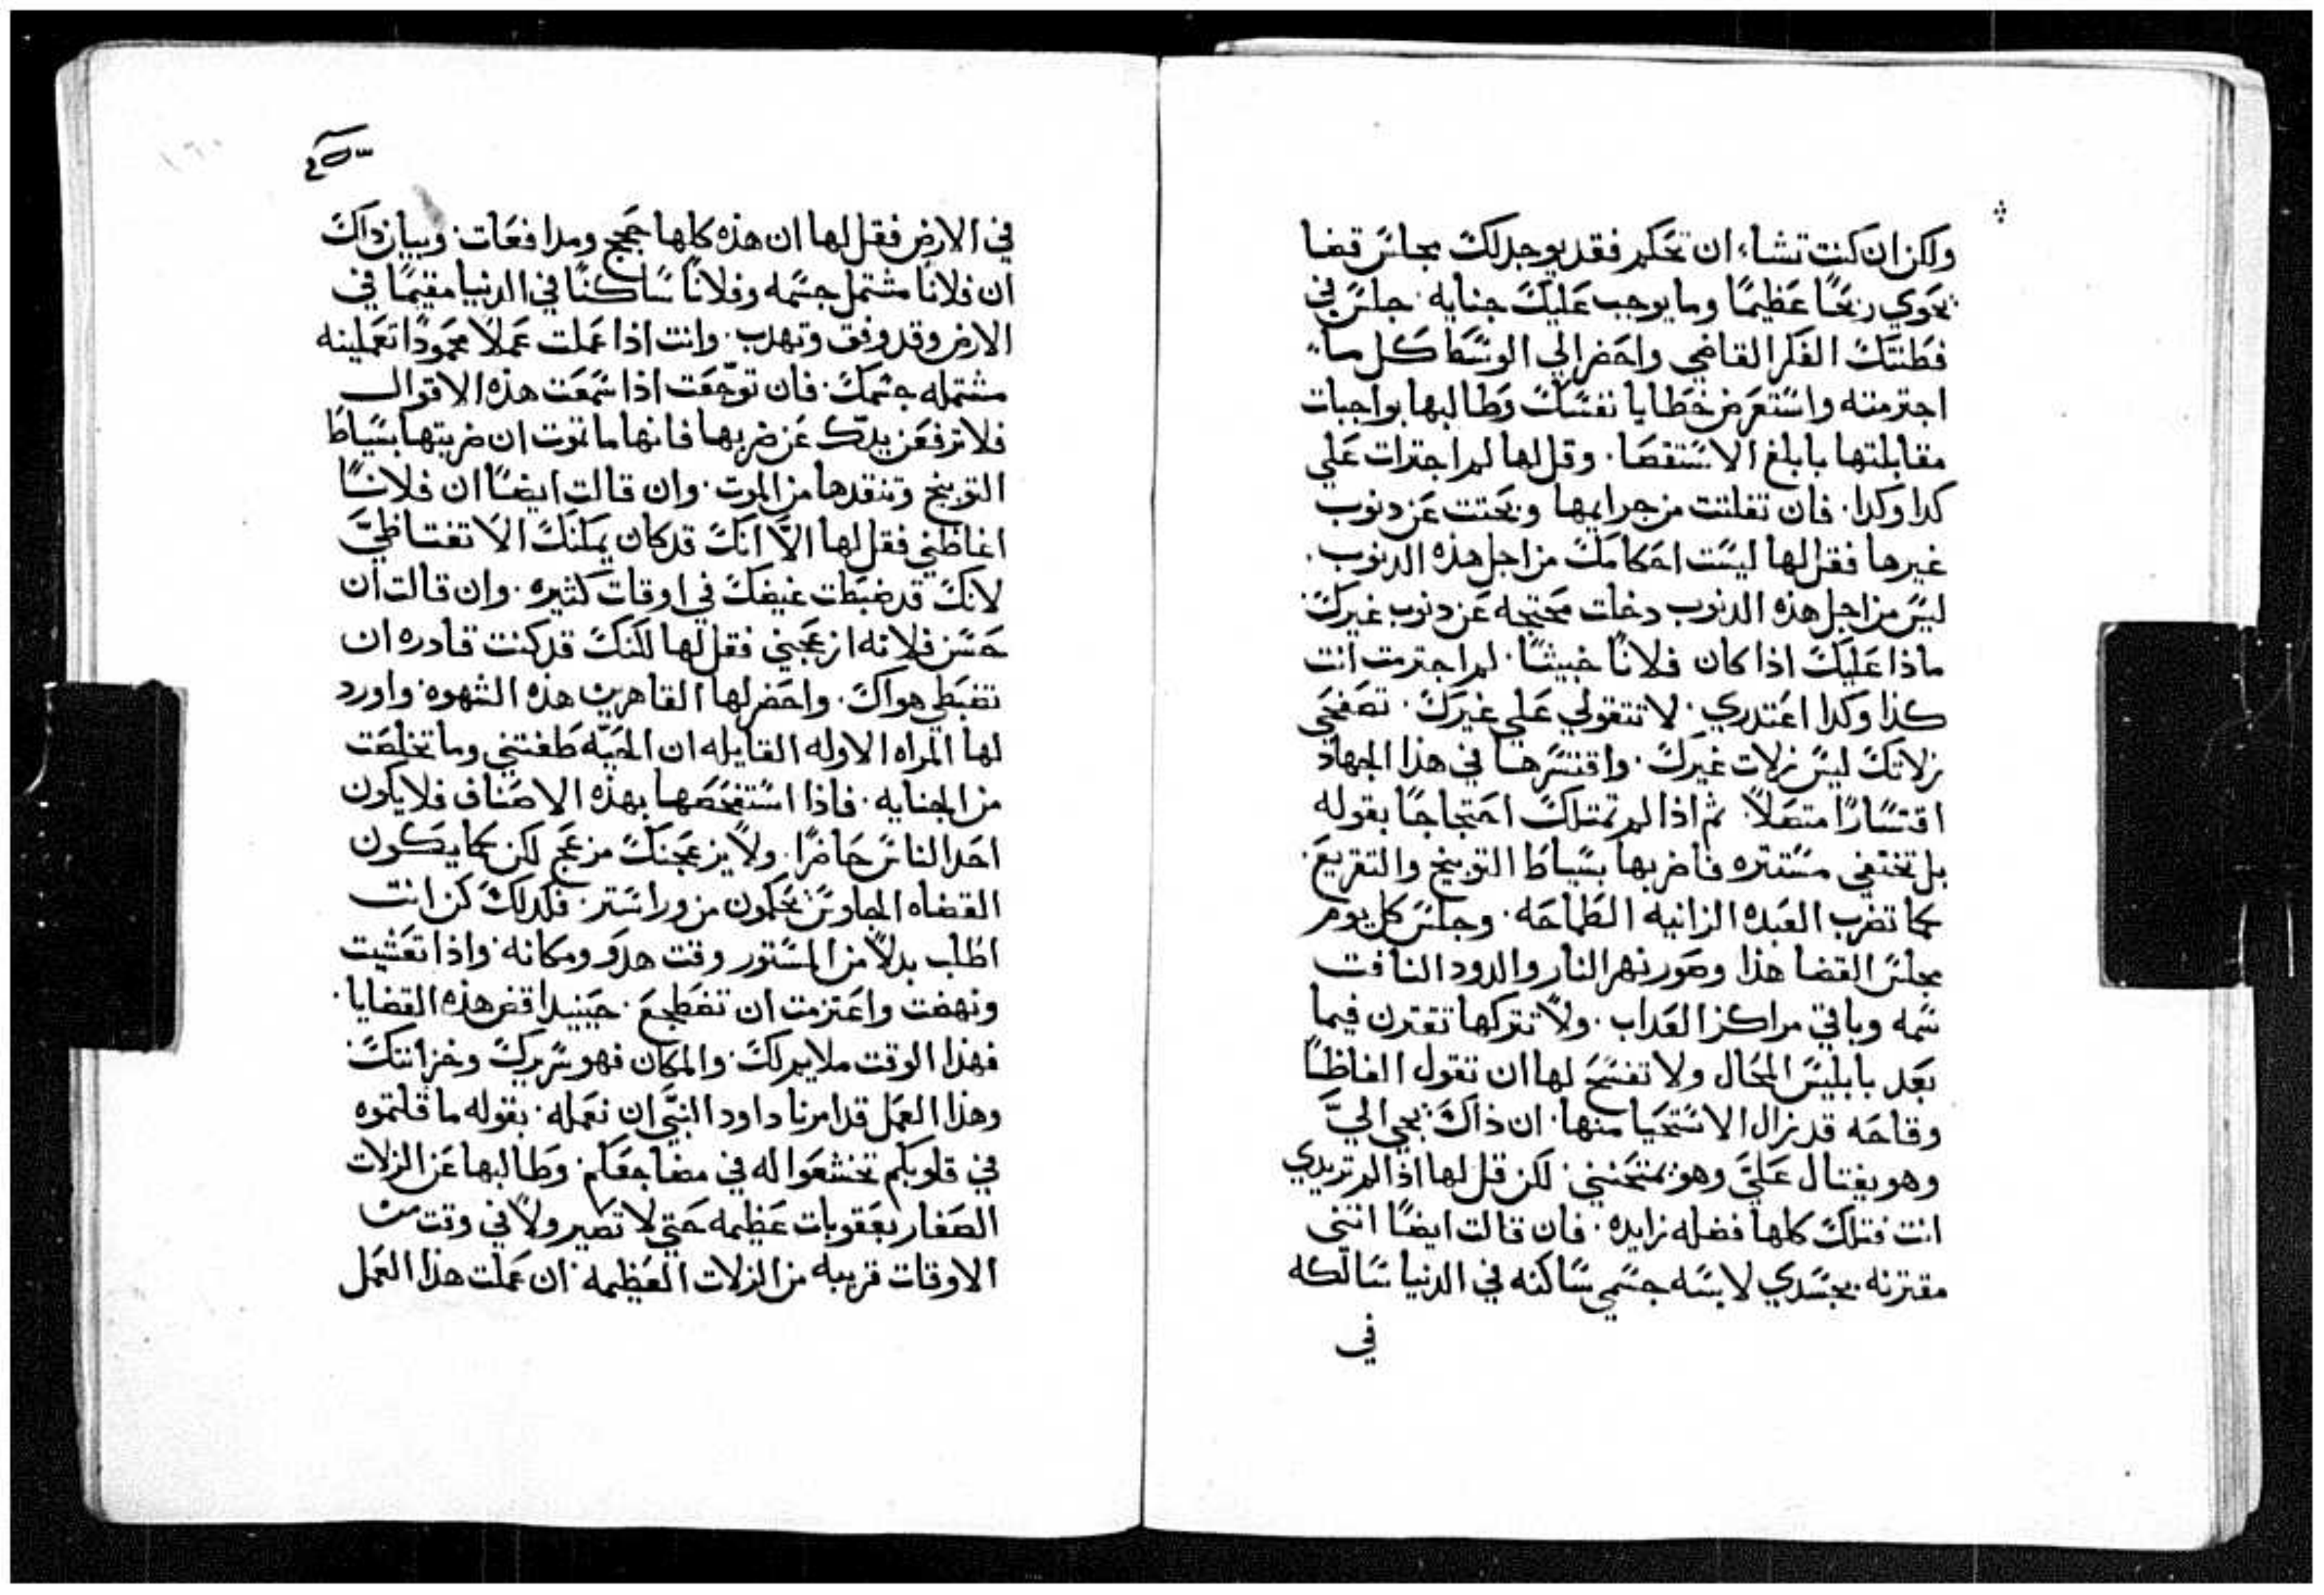 ولكن ان كنت تشاء ان تحكم فقد يوجد لك مجلس قضا
يحوي ربحًا عظيمًا وما يوجب عليك جنايه. جلس في
فطنتك الفكر القاضي واحضر الي الوسط كل ما
اجترمته واستعرض خطايا نفسك وطالبها بواجبات
مقابلتها بابلغ الاستقصا. وقل لها لم اجترات علي
كدا وكدا. فان تفلتت من جرايمها وبحتت عن دنوب
غيرها فقل لها ليست احكامك من اجل هذه الدنوب.
ليس من اجل هذه الدنوب دخلت محتجه عن دنوب غيرك.
ماذا عليك اذا كان فلانًا خبيثًا. لم اجترمت انت
كذا وكدا اعتدري. لا تتقولي علي غيرك. تصفحي
زلاتك ليس زلات غيرك. واقتسرها في هذا الجهاد
اقتسارًا متصلاً. ثم اذا لم تمتلك احتجاجًا بقوله
بل تختفي مستتره فاضربها بسياط التوبيخ والتقريع.
كما تضرب العبده الزانيه الطماحه. وجلس كل يوم
مجلس القضا هذا وصور نهر النار والدود النافت
سمه وباقي مراكز العداب. ولاً تتركها تقترن فيما
بعد بابليس المحال ولا تفسح لها ان تقول الفاظًا
وقاحه قد زال الاستحيا منها. ان ذاك يجي اليَّ
وهو يغتال عليَّ وهو يمتحنني. لكن قل لها اذا لم تريدي
انت فتلك كلها فضله زايده. فان قالت ايضًا انني
مقترنه بجسدي لابسه جسمي ساكنه في الدنيا سالكه
في
في الارض فقل لها ان هذه كلها حجج ومدافعات. وبيان داك
ان فلانًا مشتمل جسمه وفلانًا ساكنًا في الدنيا مقيمًا في
الارض وقد وفق وتهدب. وانت اذا عملت عملاً محمودًا تعملينه
مشتمله جسمك. فان توجعت اذا سمعت هذه الاقوال
فلا ترفعن يدك عن ضربها فانها ما تموت ان ضربتها بسياط
التوبيخ وتنقدها من الموت. وان قالت ايضًا ان فلانًا
اغاظني فقل لها الاّ انك قد كان يمكنك الا تغتاظيّ
لانك قد ضبطت غيضك في اوقات كثيره. وان قالت ان
حسن فلانه ازعجني فقل لها لكنك قد كنت قادره ان
تضبطي هواك. واحضر لها القاهرين هذه الشهوه واورد
لها المراه الاوله القايله ان الحيّه طغتني وما تخلصت
من الجنايه. فاذا استفحصها بهذه الاصناف فلا يكون
احد الناس حاضرًا. ولاً يزعجنك مزعج لكن كما يكون
القضاه الجاوس يحكمون من ورا ستر. فكدلك كن انت
اطلب بدلاً من الستور وقت هدو ومكانه. واذا تعشيت
ونهضت واعتزمت ان تضطجع. حينيدا قض هذه القضايا.
فهذا الوقت ملايم لك. والمكان فهو سريرك وخزانتك.
وهذا العمل قد امرنا داود النبيَّ ان نعمله. بقوله ما قلتموه
في قلوبكم تخشعوا له في مضاجعكم. وطالبها عن الزلات
الصغار بعقوبات عظيمه حتي لا تصير ولاً في وقت من
الاوقات قريبه من الزلات العظيمه. ان عملت هذا العمل